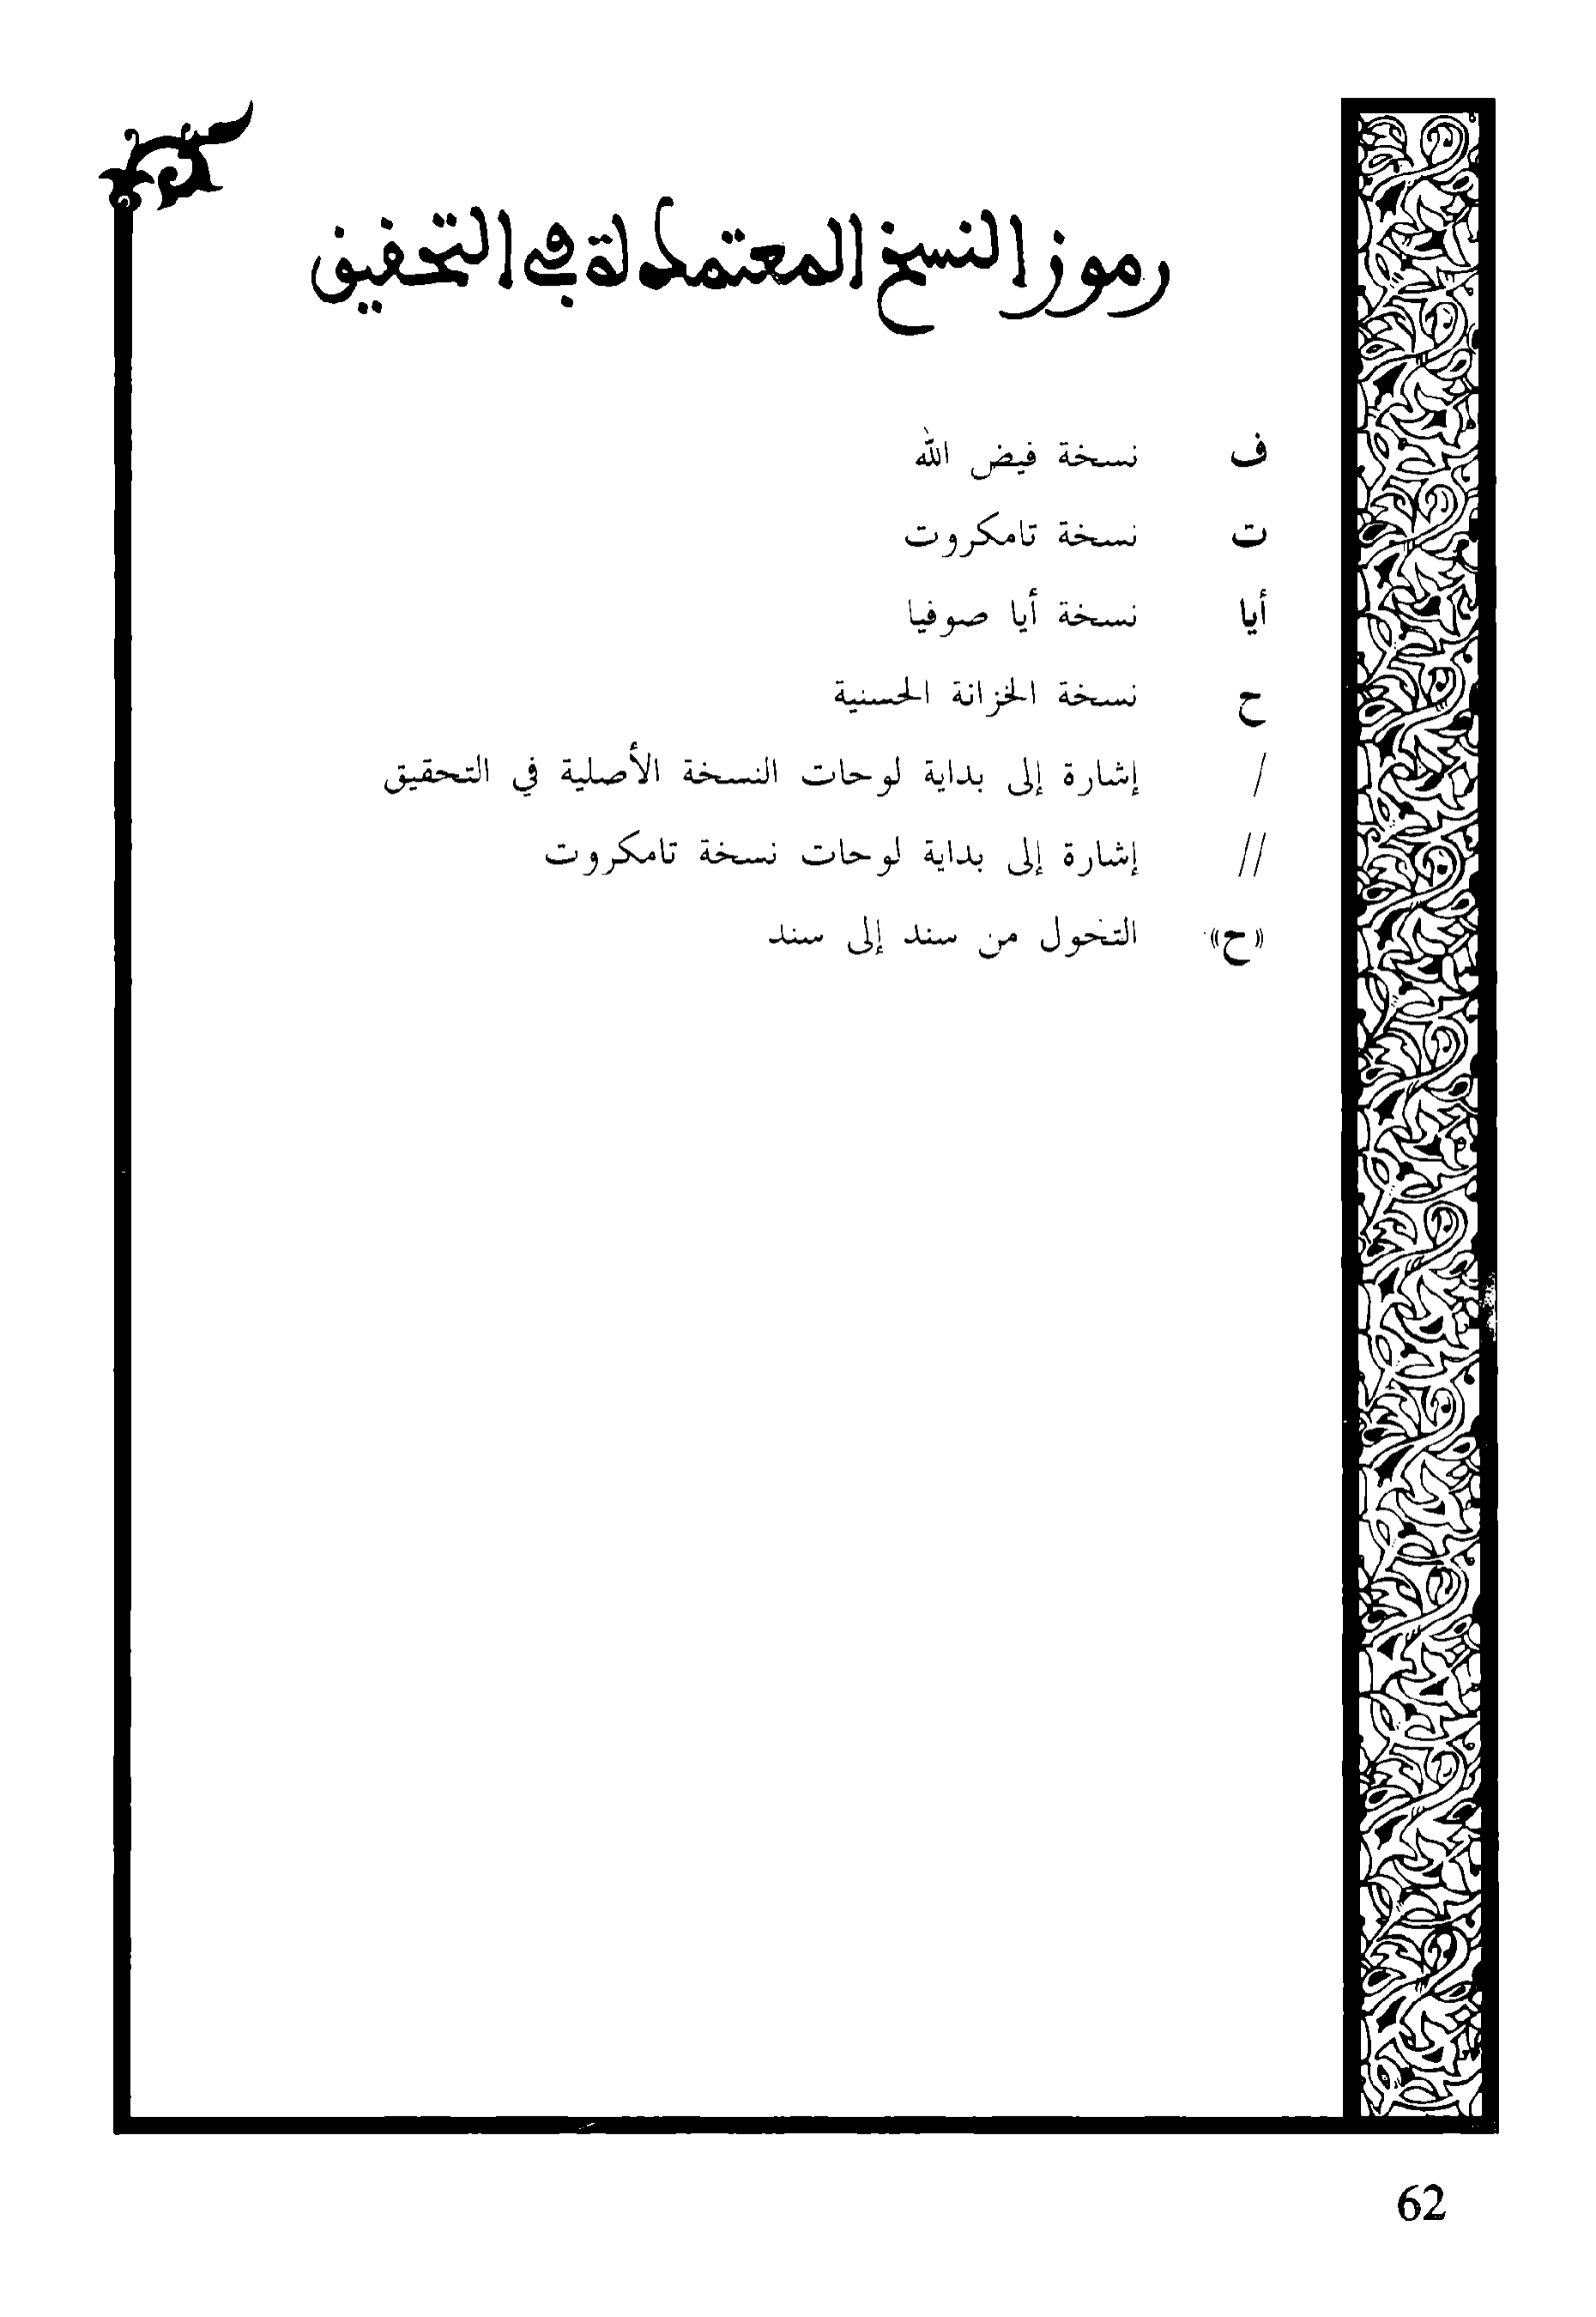 رموز النسخ المعتمدة في التحقيق
ف نسخة فيض الله
ت نسخة تامكروت
أيا نسخة أيا صوفيا
ح نسخة الخزانة الحسنية
/ إشارة إلى بداية لوحات النسخة الأصلية في التحقيق
// إشارة إلى بداية لوحات نسخة تامكروت
«ح» التحول من سند إلى سند
62